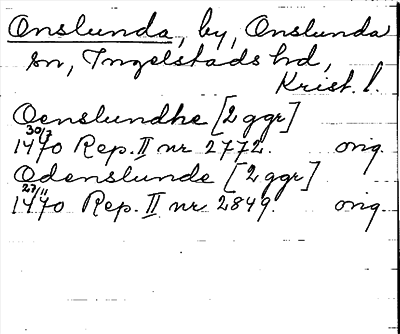 Onslunda, by, Onslunda
sn, Ingelstads hd,
Krist. l.
Oenslundhe [2 ggr]
30/7
1470 Rep. II nr 2772. orig.
Odenslunde [2 ggr]
27/11
1470 Rep. II nr 2849. orig.